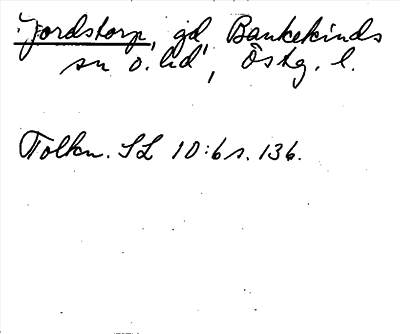 Fjordstorp, gd, Bankekinds
sn o. hd, Östg. l.
Tolkn. SL 10:6 s. 136.